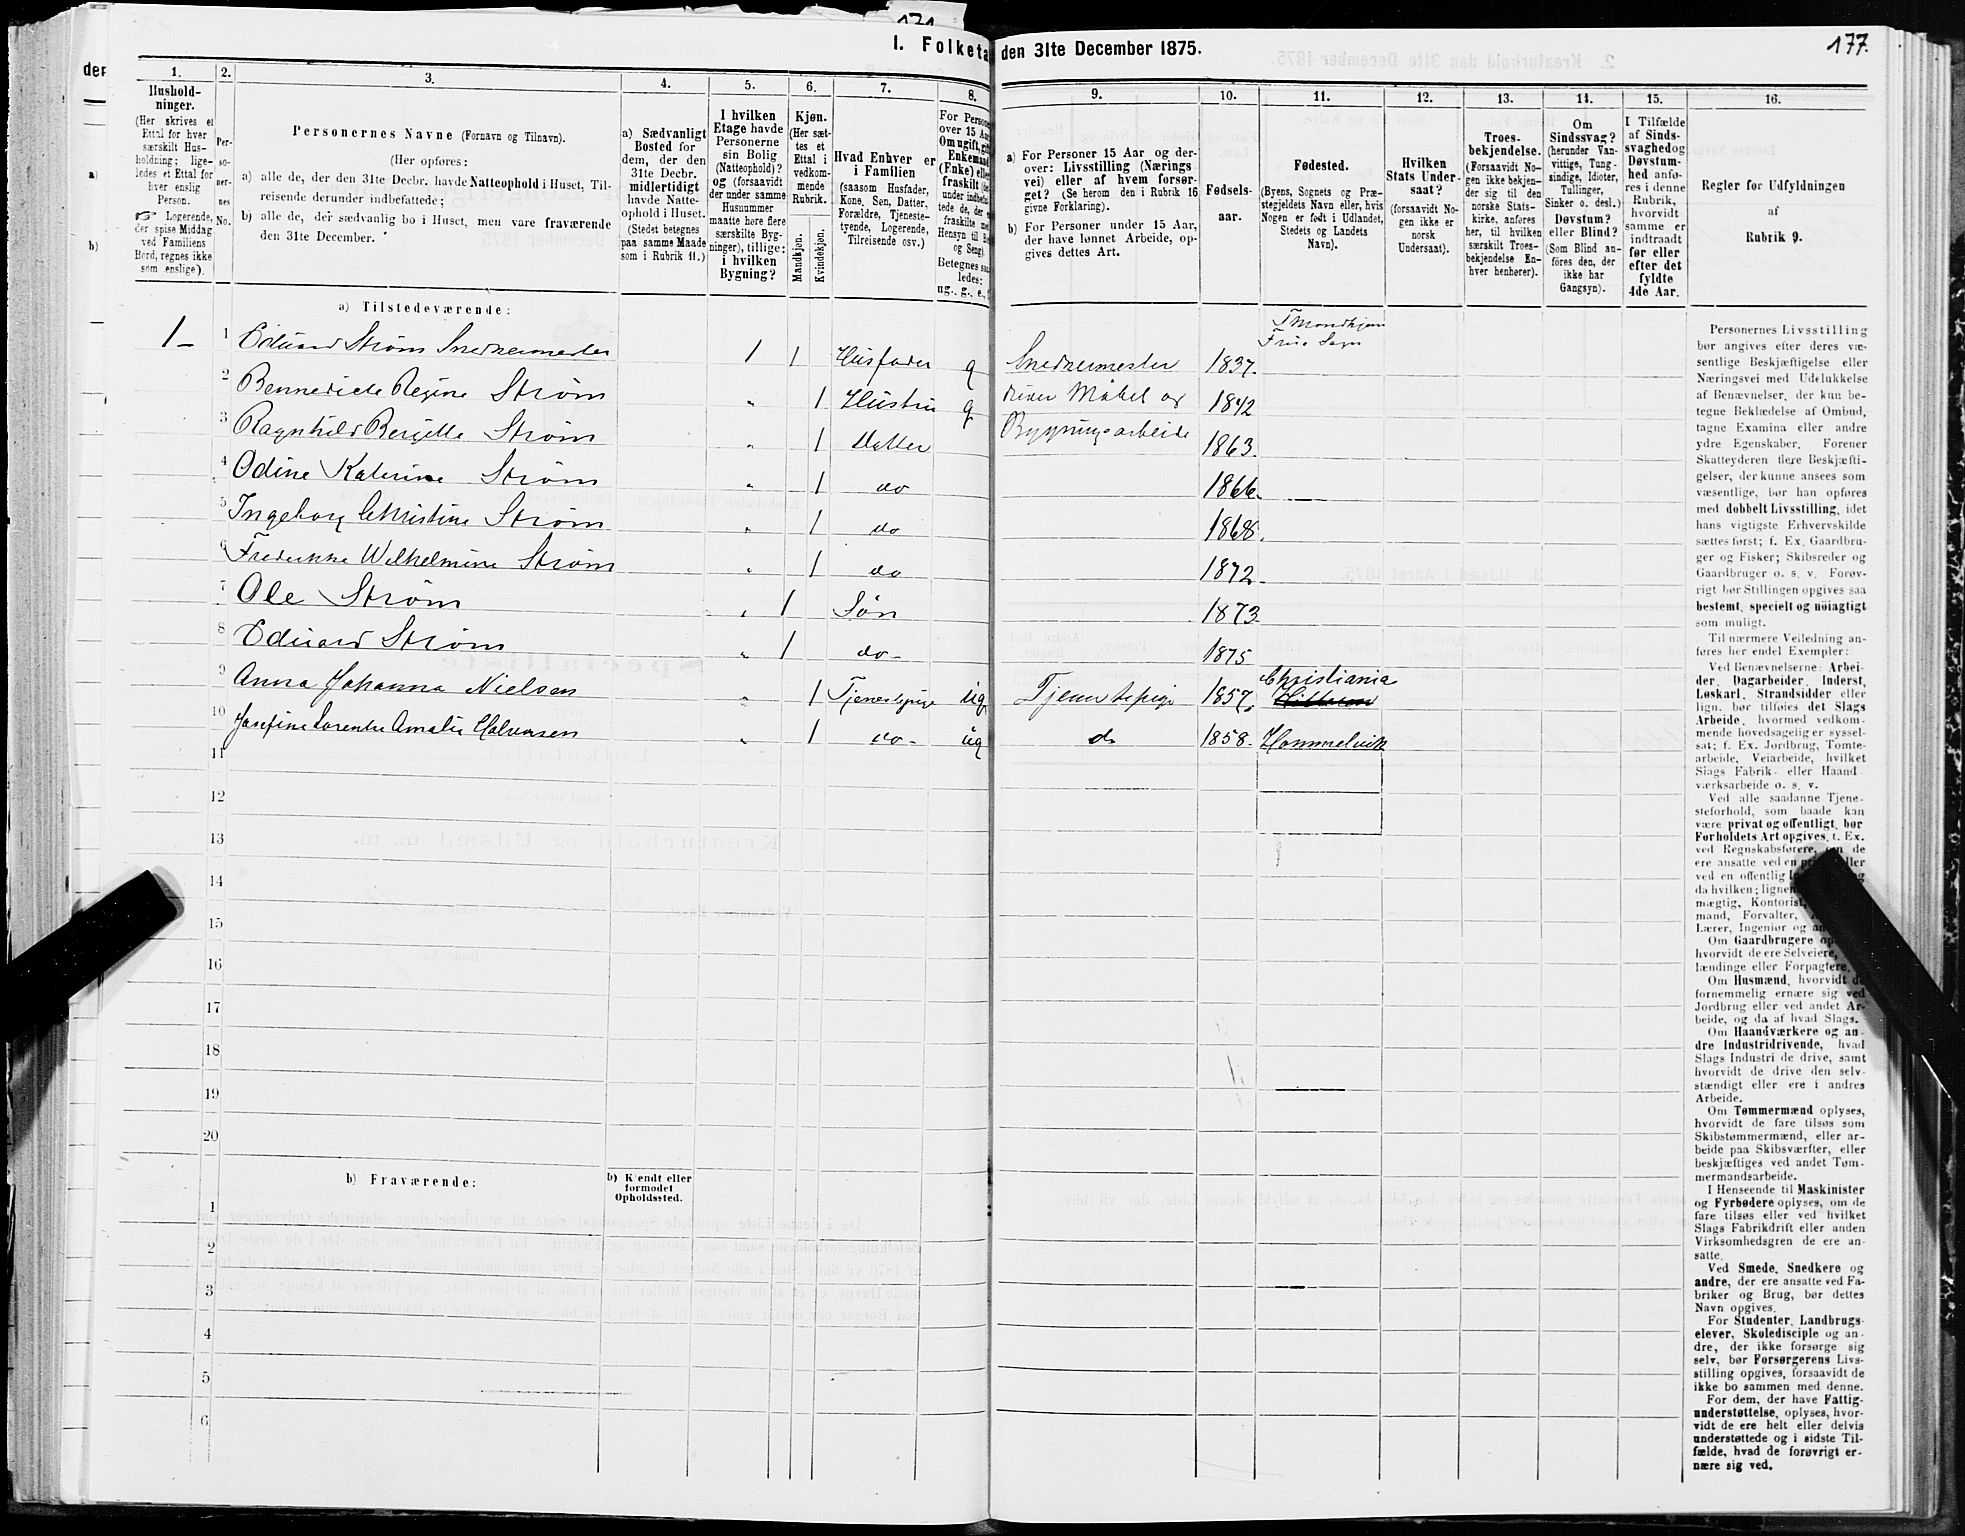 171
177.
I. Folketa
den 31te December 1875.
der
a)
b)
1.
Hushold-
ninger.
(Her skrives et
Ettal for hver
særskilt Hus-
holdning; lige-
ledes et Ettal for
hver enslig
Person.
☞ Logerende,
der spise Middag
ved Familiens
Bord, regnes ikke
som enslige).
2.
Per-
so-
ner-
nes
No.
3.
Personernes Navne (Fornavn og Tilnavn).
(Her opføres:
a) alle de, der den 31te Decbr. havde Natteophold i Huset, Til-
reisende derunder indbefattede;
b) alle de, der sædvanlig bo i Huset, men vare fraværende
den 31te December.
4.
a) Sædvanligt
Bosted for
dem, der den
31te Decbr.
midlertidigt
havde Natte-
ophold i Huset.
(Stedet betegnes
paa samme Maade
som i Rubrik 11.)
5.
I hvilken
Etage havde
Personerne
sin Bolig
(Natteophold)?
og (forsaavidt
der under samme
Husnummer
maatte høre flere
særskilte Byg-
ninger), tillige:
i hvilken
Bygning?
6.
Kjøn.
(Her sæt-
tes et
Ettal i
vedkom-
mende
Rubrik.
Mandkjøn.
Kvindekjøn.
7.
Hvad Enhver er
i Familien
(saasom Husfader,
Kone, Søn, Datter,
Forældre, Tjeneste-
tyende, Logerende,
Tilreisende osv.)
8.
For Persone
over 15 Aa
Om ugift, gift
Enkemand
(Enke) elle
fraskilt
under indbefa
tede de, der
fraskilte me
Hensyn til B
og Seng)
Betegnes saa
ledes:
ug., g., e.,
9.
a) For Personer 15 Aar og der-
over: Livsstilling (Nærings
vei) eller af hvem forsør-
get? (Se herom den i Rubrik 16
givne Forklaring).
b) For Personer under 15 Aar,
der have lønnet Arbeide, op-
gives dettes Art.
10.
Fødsels-
aar.
11.
Fødested.
(Byens, Sognets og Præ-
stegjeldets Navn eller, hvis
Nogen er født i Udlandet,
Stedets og Landets
Navn).
12.
Hvilken
Stats Under-
saat?
(forsaavidt No-
gen ikke er
norsk
Undersaat).
13.
Troes-
bekjendelse.
(Forsaavidt No-
gen ikke bekjen-
der sig til den
norske Stats-
kirke, anføres
her, til hvilken
særskilt Troes-
bekjendelse En-
hver henhører).
14.
Om
Sindssvag?
(herunder Van-
vittige, Tung-
sindige, Idioter,
Tullinger,
Sinker o. desl.)
Døvstum?
eller Blind?
(Som Blind an-
føres den, der
ikke har
Gangsyn).
15.
I Tilfælde
af Sinds-
svaghed og
Døvstum-
hed anfø-
res i denne
Rubrik,
hvorvidt
samme er
indtraadt
før eller
efter det
fyldte
4de Aar.
16.
Regler for Udfyldningen
af
Rubrik 9.
a) Tilstedeværende:
1 - 1 Eduard Strøm Snedkermester 1 1 Husfader g Snedkermester 1837. Trondhjem Frue Sogn
2 Bennedicte Regine Strøm " 1 Hustru g driver Møbel og 1842
3 Ragnhild Bergitte Strøm " 1 Datter Bygningsarbeide 1863.
4 Odine Katrine Strøm " 1 do 1866.
5 Ingeborg Christine Strøm " 1 do 1868.
6 Frederikke Wilhelmine Strøm " 1 do 1872
7 Ole Strøm " 1 Søn 1873
8 Eduard Strøm " 1 do - 1875
9 Anna Johanna Nielsen " 1 Tjenestepige ug Tjenestepige 1857. Christiania
10 Josefine Lorentse Amalie Halvorsen " 1 do - ug do 1858. Hommelvik
11
12
13
14
15
16
17
18
19
20
b) Fraværende:
b) Kjendt eller
formodet
Opholdssted.
1
2
3
4
5
6
Personernes Livsstilling
bør angives efter deres væ-
sentlige Beskjæftigelse eller
Næringsvei med Udelukkelse
af Benævnelser, der kun be-
tegne Beklædelse af Ombud,
tagne Examina eller andre
ydre Egenskaber. Forener
Skatteyderen flere Beskjæfti-
gelser, der kunne ansees som
væsentlige, bør han opføres
med dobbelt Livsstilling, idet
hans vigtigste Erhvervskilde
sættes først; f. Ex. Gaardbru-
ger og Fisker; Skibsreder og
Gaardbruger o. s. v. Forøv-
rigt bør Stillingen opgives saa
bestemt, specielt og nöiagtigt
som muligt.
Til nærmere Veiledning an-
føres her endel Exempler:
Ved Benævnelserne: Arbei-
der, Dagarbeider, Inderst,
Løskarl, Strandsidder eller
lign. bør tilføies det Slags
Arbeide, hvormed vedkom-
mende hovedsagelig er syssel-
sat; f. Ex. Jordbrug, Tomte-
arbeide, Veiarbeide, hvilket
Slags Fabrik- eller Haand-
værksarbeide o. s. v.
Ved alle saadanne Tjene-
steforhold, som baade kan
være privat og offentligt, bør
Forholdets Art opgives, t. Ex.
ved Regnskabsførere, om de
ere ansatte ved en privat eller
ved en offentlig
da hvilken; lignen
mægtig, Kontorist,
mand, Forvalter,
Lærer, Ingeniør og
Om Gaardbrugere op
hvorvidt de ere Selveiere,
lændinge eller Forpagtere.
Om Husmænd, hvorvidt de
fornemmelig ernære sig ved
Jordbrug eller ved andet Ar-
beide, og da af hvad Slags.
Om Haandværkere og an-
dre Industridrivende, hvad
Slags Industri de drive, samt
hvorvidt de drive den selv-
stændigt eller ere i andres
Arbeide.
Om Tømmermænd oplyses,
hvorvidt de fare tilsøs som
Skibstømmermænd, eller ar-
beide paa Skibsværfter, eller
beskjæftiges ved andet Tøm-
mermandsarbeide.
I Henseende til Maskinister
og Fyrbødere oplyses, om de
fare tilsøs eller ved hvilket
Slags Fabrikdrift eller anden
Virksomhedsgren de ere an-
satte.
Ved Smede, Snedkere og
andre, der ere ansatte ved Fa-
briker og Brug, bør dettes
Navn opgives.
For Studenter, Landbrugs-
elever, Skoledisciple og an-
dre, der ikke forsørge sig
selv, bør Forsørgerens Livs-
stilling opgives, forsaavidt de
ikke bo sammen med denne.
For dem, der have Fattig-
understøttelse, oplyses, hvor-
vidt de ere helt eller delvis
understøttede og i sidste Til-
fælde, hvad de forøvrigt er-
nære sig ved.